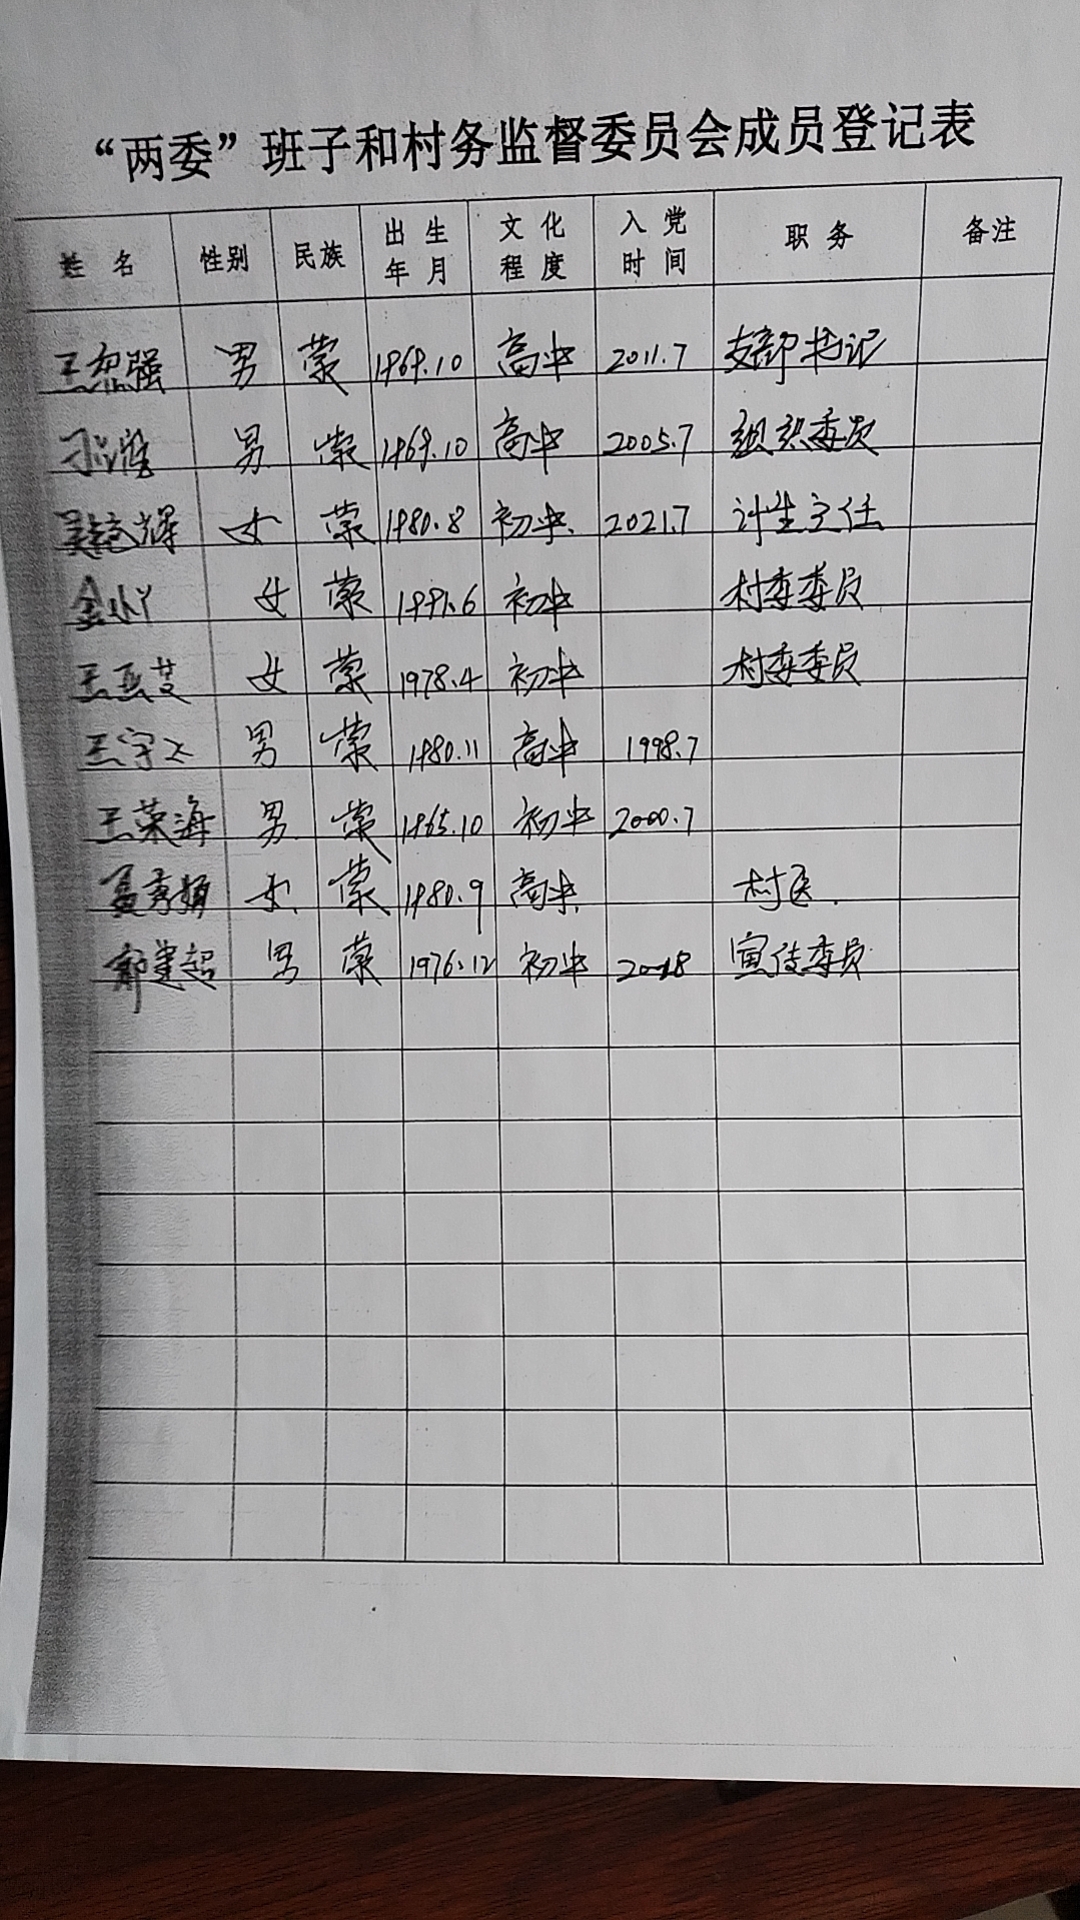 “两委”班子和村务监督委员会成员登记表
姓 名 性别 民族 出 生 年 月 文 化 程 度 入 党 时 间 职 务 备注
强 男 蒙 1969.10 高中 2011.7 支部书记
男 蒙 1969.10 高中 2005.7 组织委员
辉 女 蒙 1980.8 初中. 2021.7 计生主任
金小丫 女 蒙 初中 村委委员
王玉艾 女 蒙 1978.4 初中 村委委员
王守 男 蒙 1980.11 高中 1998.7
王荣海 男 蒙 1965.10 初中 2000.7
女 蒙 1980.9 高中. 村医.
郭建超 男 蒙 1976.12 初中 2018 宣传委员